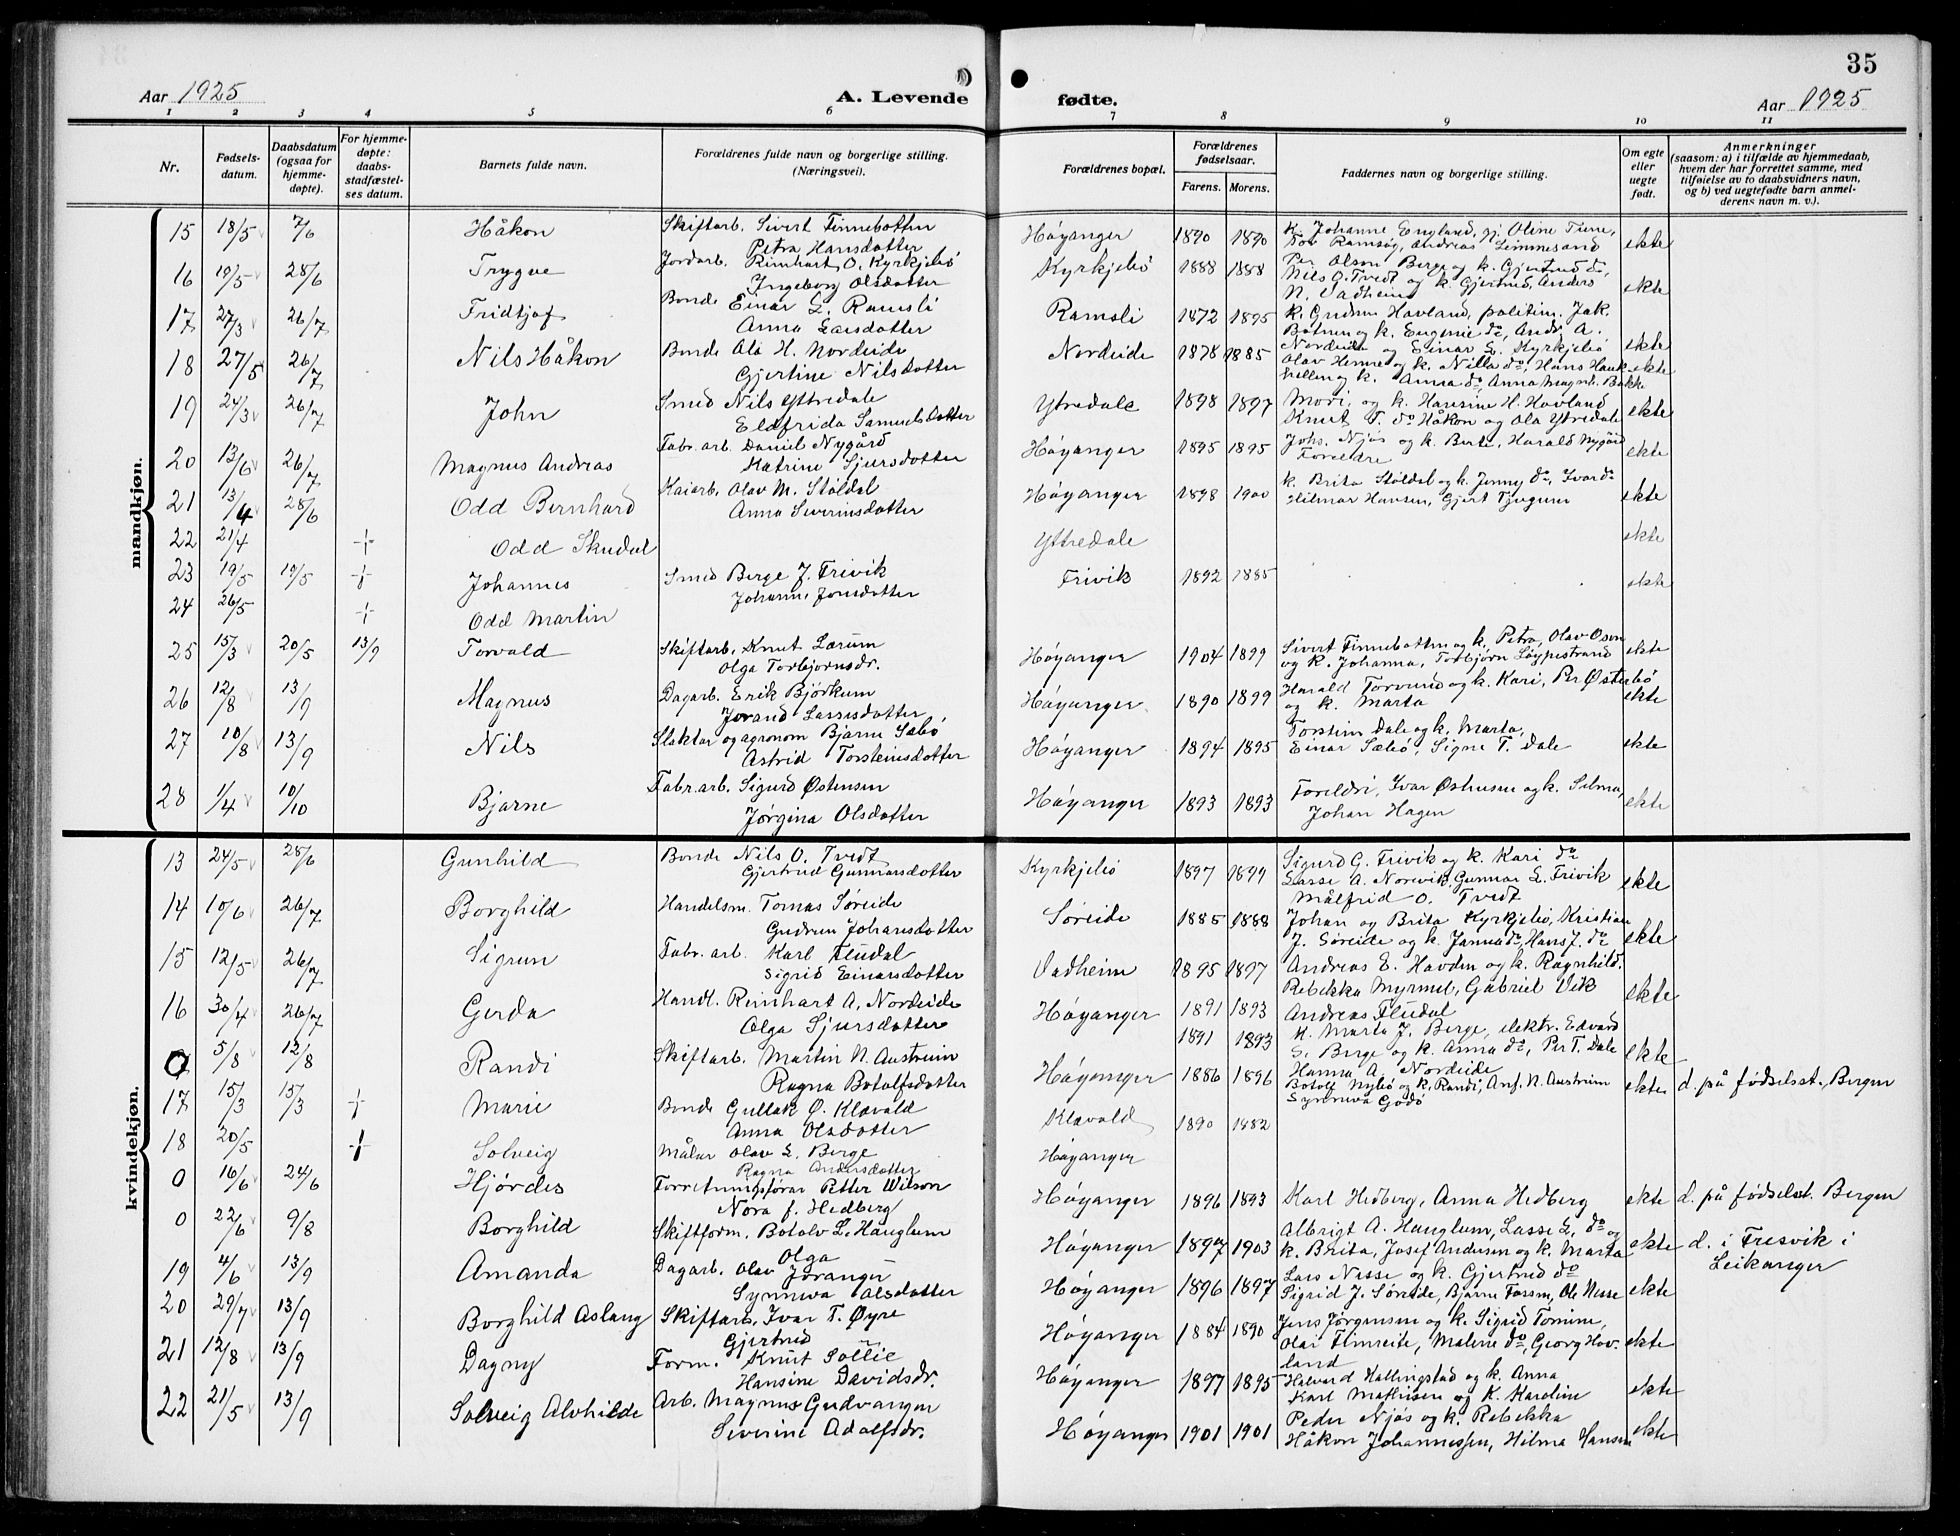 35
Aar 1925
A. Levende
fødte.
Aar 1925
1 2 3 4 5 6 7 8 9 10 11
Nr.
Fødsels-
datum.
Daabsdatum
(ogsaa for
hjemme-
døpte).
For hjemme-
døpte:
daabs-
stadfæstel-
ses datum.
Barnets fulde navn.
Forældrenes fulde navn og borgerlige stilling.
(Næringsvei).
Forældrenes bopæl.
Forældrenes
fødselsaar.
Farens. Morens.
Faddernes navn og borgerlige stilling.
Om egte
eller
uegte
født.
Anmerkninger
(saasom: a) i tilfælde av hjemmedaab,
hvem der har forrettet samme, med
tilføielse av to daabsvidners navn,
og b) ved uegtefødte barn anmel-
derens navn m. v.).
mandkjøn.
15 18/5 7/6 Håkon Skiftarb. Sivert Finnebotten Høyanger 1890 1890 k. Johanne England, gj. Oline Tune, ekte
Petra Hansdotter Tov Ramsøy, Andreas Limmesand
16 19/5 28/6 Trygve Jordarb. Reinhart O. Kyrkjebö Kyrkjebö 1888 1888 Per Olsen Berge og k. Gjertrud do, ekte
Ingeborg Olsdotter Nils O. Tvedt og k. Gjertrud, Anders
N. Vadheim
17 27/3 26/7 Fridtjof Bonde Einar L. Ramsli Ramsli 1872 1895 k. Gudrun Havland, politim. Jak. ekte
Anna Larsdotter Botnen og k. Eugenie do, Andr. A.
Nordeide og Einar L. Kyrkjebö
18 27/5 26/7 Nils Håkon Bonde Ola H. Nordeide Nordeide 1878 1885 Olav Henne og k. Nilla do, Hans Hauk- ekte
Gjertine Nilsdotter og k. Anna do, Anna Magnh. Bakke
19 24/3 26/7 John Smed Nils Yttredale Ytredale 1898 1897 og k. Hansine H. Hovland ekte
Elefrida Samuelsdotter Knut T. do Håkon og Ola Ytredale
20 13/6 26/7 Magnus Andreas Fabr. arb. Daniel Nygård Høyanger 1895 1895 Johs. Njøs og k. Berte, Harald Nygård ekte
Matrine Sjursdotter Foreldre
21 13/4 28/6 Odd Bernhard Kaiarb. Olav M. Stöldal Høyanger 1898 1900 k. Brita Stöldal og k. Jenny do, Ivar do ekte
Anna Severinsdotter Hilmar Hansen, Gjert Tjugum
22 21/4 + Odd Skudal Yttredale ekte
23 19/5 19/5 + Johannes Smed Berge J. Trivik Trivik 1892 1885 ekte
Johanne Jonsdotter
24 26/5 + Odd Martin
25 15/3 20/5 13/9 Torvald Skiftarb. Knut Lærum Høyanger 1904 1899 Sivert Finnebotten og k. Petra, Olav Osen ekte
Olga Torbjornsdr. og k. Johanna, Torbjörn Löypestrand
26 12/8 13/9 Magnus Dagarb. Erik Björkum Høyanger 1890 1899 Harald Torvund og k. Kari, Per Østerbö ekte
Jorand Lassesdotter og k. Marta
27 10/8 13/9 Nils Slaktar og agronom Bjarne Sæbö Høyanger 1894 1895 Torstein Dale og k. Marta, ekte
Astrid Torsteinsdotter Einar Sæbö, Signe T. Dale
28 1/4 10/10 Bjarne Fabr. arb. Sigurd Østensen Høyanger 1893 1893 Foreldri, Ivar Østhusen og k. Selma, ekte
Jørgina Olsdotter Johan Hagen
kvindekjøn.
13 24/5 28/6 Gunhild Bonde Nils O. Tvedt Kyrkjebö 1897 1899 Sigurd G. Trivik og k. Kari do ekte
Gjertrud Gunnarsdotter Lasse A. Norevik, Gunnar L. Trivik
Målfrid O. Tvedt
14 10/6 26/7 Borghild Handelsm. Tomas Søreide Søreide 1885 1888 Johan og Brita Kyrkjebö, Kristian ekte
Gudrun Johansdotter J. Søreide og k. Janna do, Hans J. do
15 12/5 26/7 Sigrun Fabr. arb. Karl Fludal Vadheim 1895 1897 Andreas E. Havden og k. Ragnhild.
Sigrid Einarsdotter Rebekka Myrmel, Gabriel Vik ekte
Andreas Fludal
16 30/4 26/7 Gerda Handl. Reinhart A. Nordeide Høyanger 1891 1893
Olga Sjursdotter 1891 1893 k. Marta J. Berge, elektr. Edvard
S. Berge og k. Anna do, Per T. Dale ekte
Hanna A. Nordeide
0 5/8 12/8 Randi Skiftarb. Martin N. Austreim Høyanger 1886 1896 Botolf Nybö og k. Randi, Anf. N. Austreim ekte d. på fødselsst. Bergen
Ragna Botolfsdotter Synneva Godö
17 15/3 15/3 + Marie Bonde Gullak Ø. Klævold Klævold 1890 1882
Anna Olsdotter
18 20/5 + Solveig Målar Olav L. Berge Høyanger
Ragna Andersdotter
0 16/6 24/6 Hjørdes Forretningsførar Petter Wilson Høyanger 1896 1893 Karl Hedberg, Anna Hedberg ekte d. på fødselsst. Bergen
Nora f. Hedberg
0 22/6 9/8 Borghild Skiftform. Botolv L. Hauglum Høyanger 1897 1903 Albrigt A. Hauglum, Lasse L. do og ekte d. i Fresvik i
Olga k. Brita, Josef Andersen og k. Marta Leikanger
19 4/6 13/9 Amanda Dagarb. Olav Jøranger Høyanger 1896 1897 Lars Nesse og k. Gjertrud do ekte
Synneva Olsdotter Sigrid J. Søreide, Bjarne Forsm, Ole Nesse
20 29/7 13/9 Borghild Aslaug Skiftarb. Ivar T. Øyre Høyanger 1884 1890 Jens Jørgensen og k. Sigrid ekte
Gjertrud Olai Flimreite, Malene do, Georg Hov-
land
21 12/8 13/9 Dagny Form. Knut Sollie Høyanger 1897 1895 Halvard Hallingstad og k. Anna ekte
Hansine Davidsdr. Karl Mathisen og K. Karoline
22 21/5 13/9 Solveig Alvhilde Arb. Magnus Gudvangen Høyanger 1901 1901 Peder Njøs og k. Rebekka ekte
Severine Adolfsdr. Håkon Johannessen, Hilma Hansen